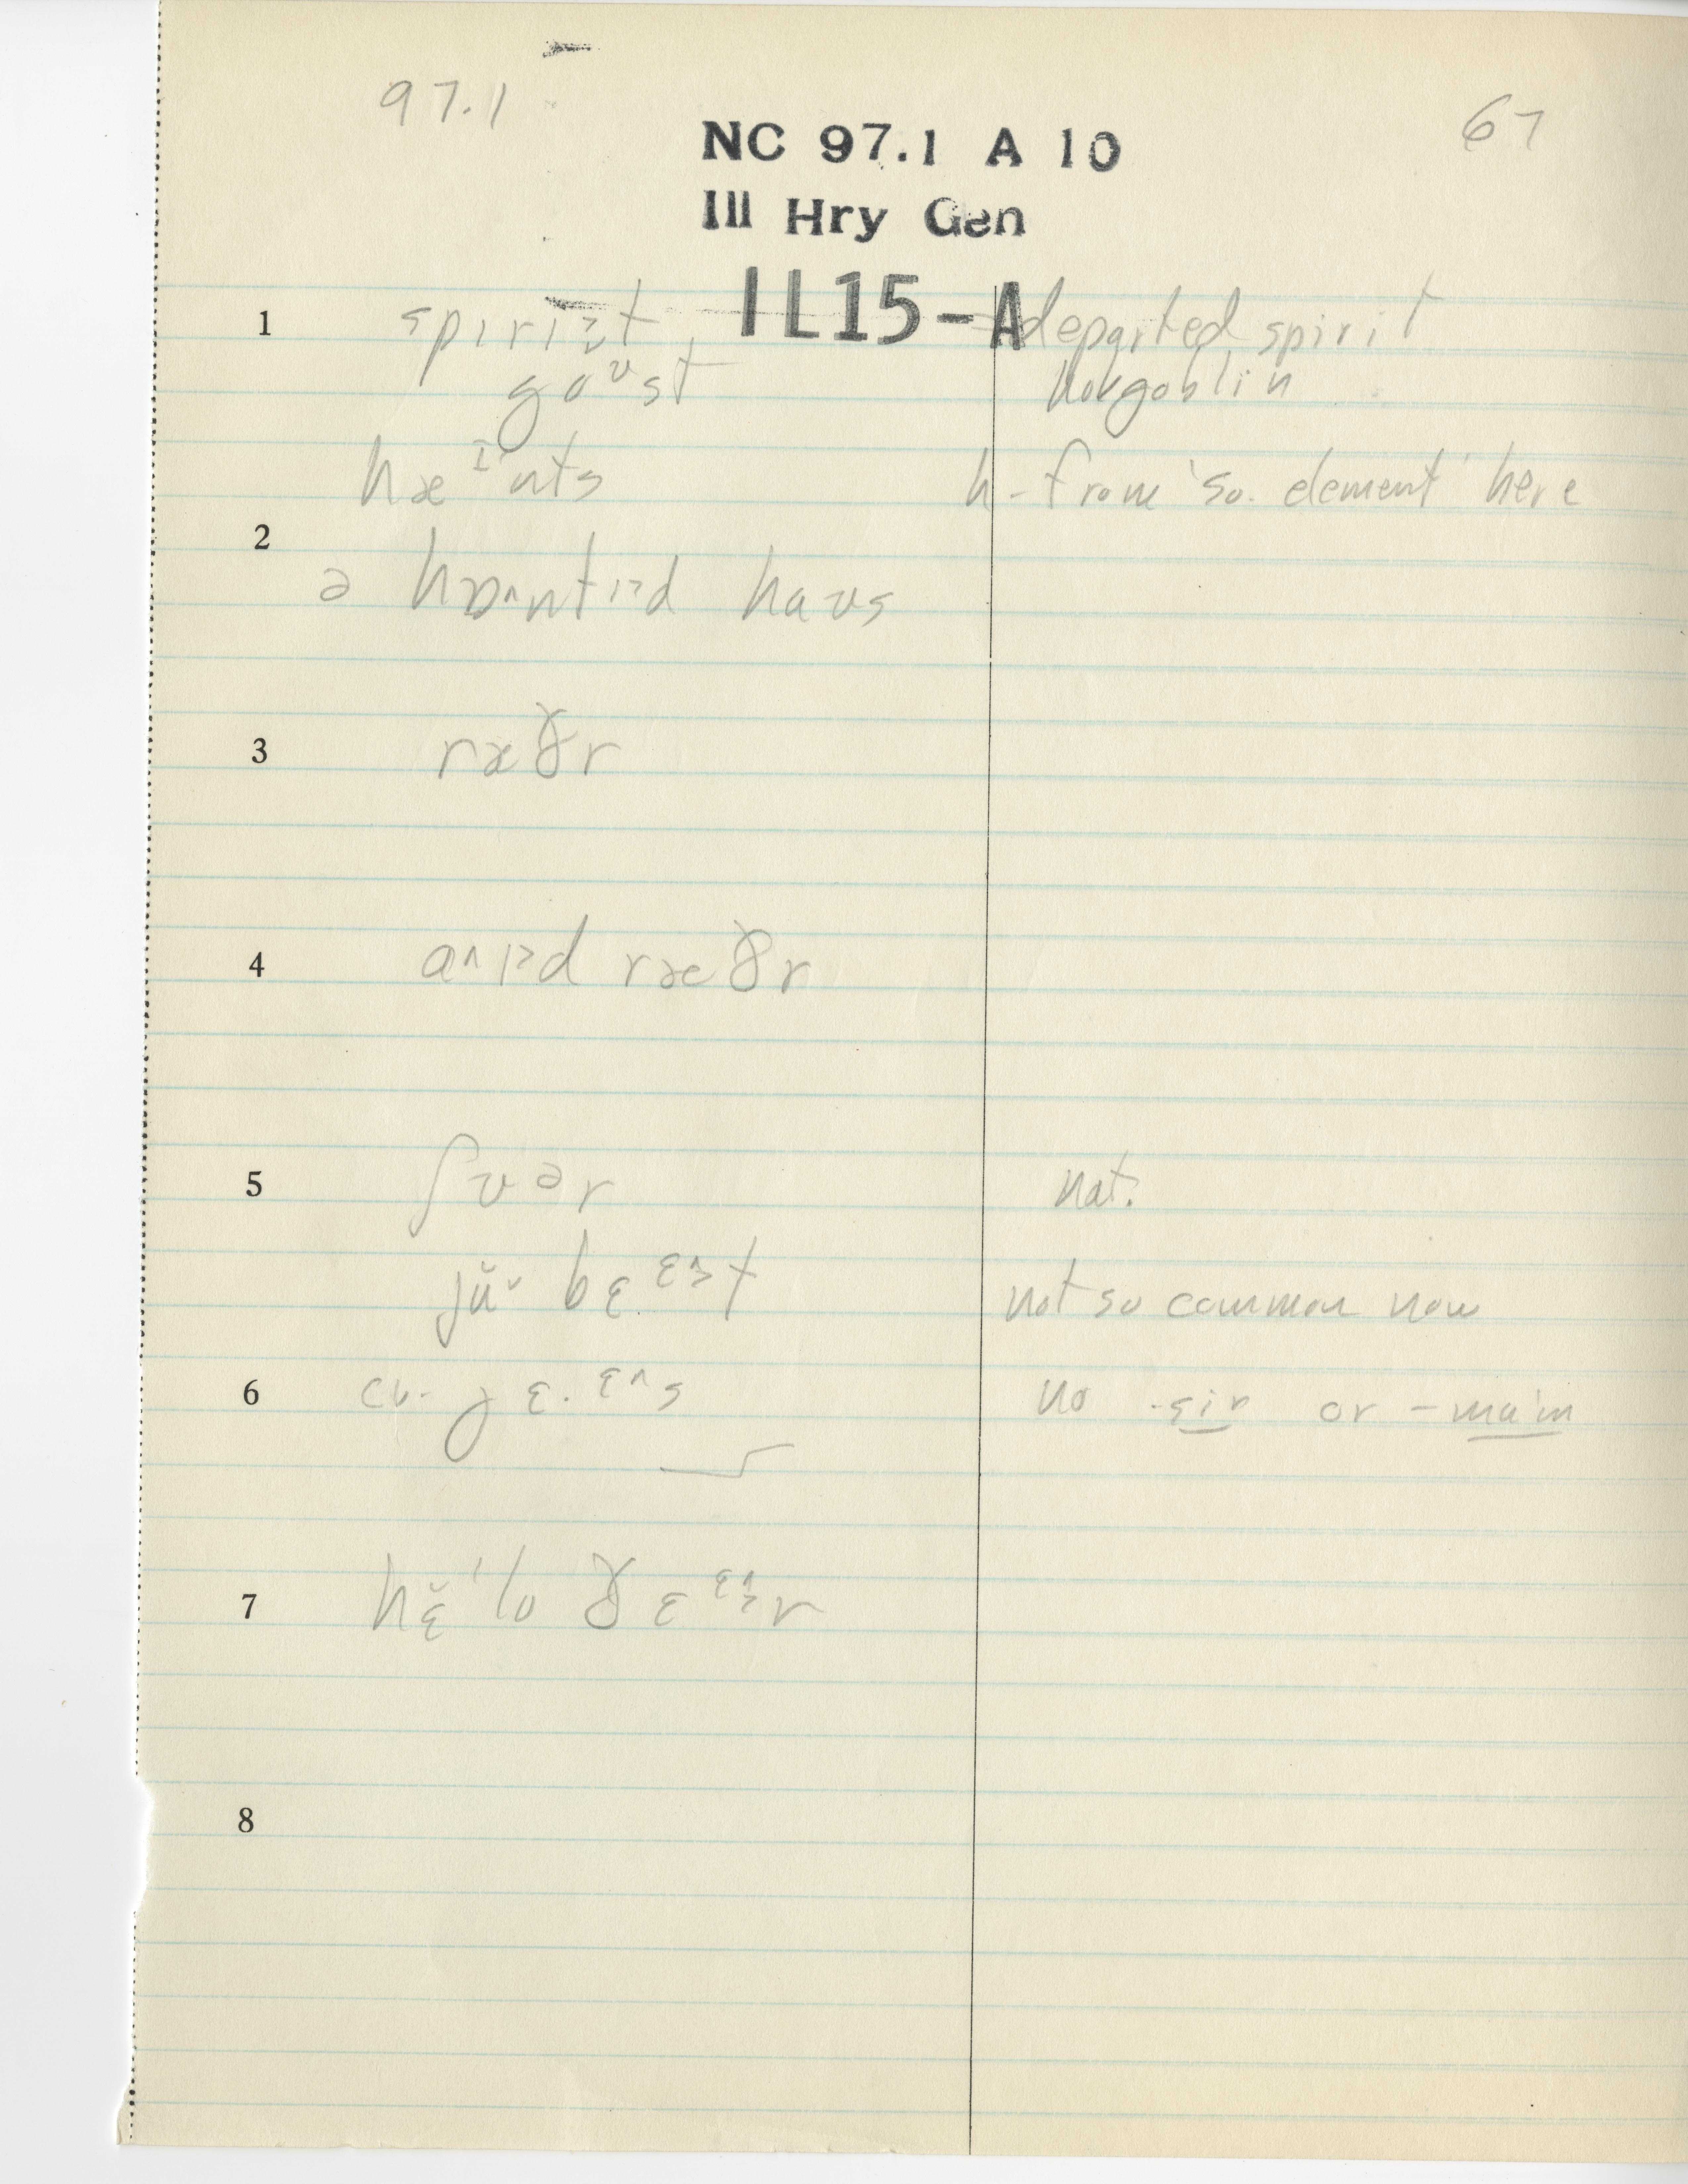 97.1
67
NC 97.1 A 10
Ill Hry Gen
IL15-A
1 spɪrɪt departed spirit
goᶷst hobgoblin
hæᶦnts h- from 'so. element' here
2
ə hɒ˄ntɪ˃d haʊs
3 ræðr
4 a˄ɪ˃d ræðr
5 ʃʊər nat.
jŭˇ bɛᵋ˄˃t not so common now
6 cv. jɛ·ᵋ˄s no -sir or -ma'm
7 hɛ̆'lo ðɛᵋ˄˃r
8